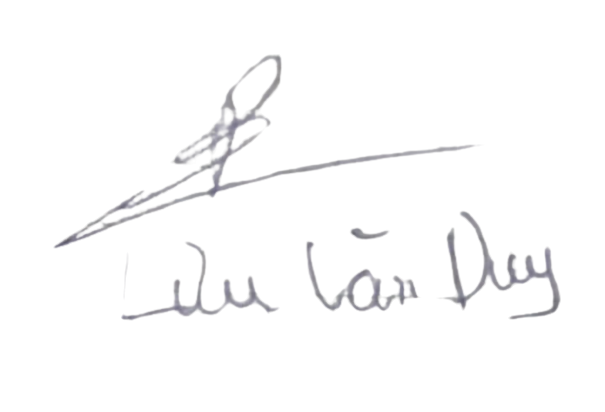 Lưu Văn Duy